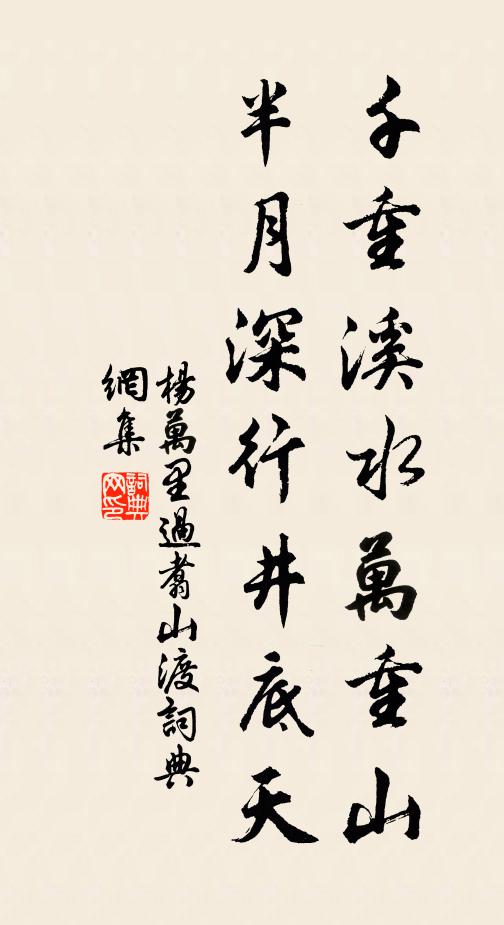 千重溪水萬重山
半月深行井底天
楊萬里過翥山渡詞典
網集
詞典
网印